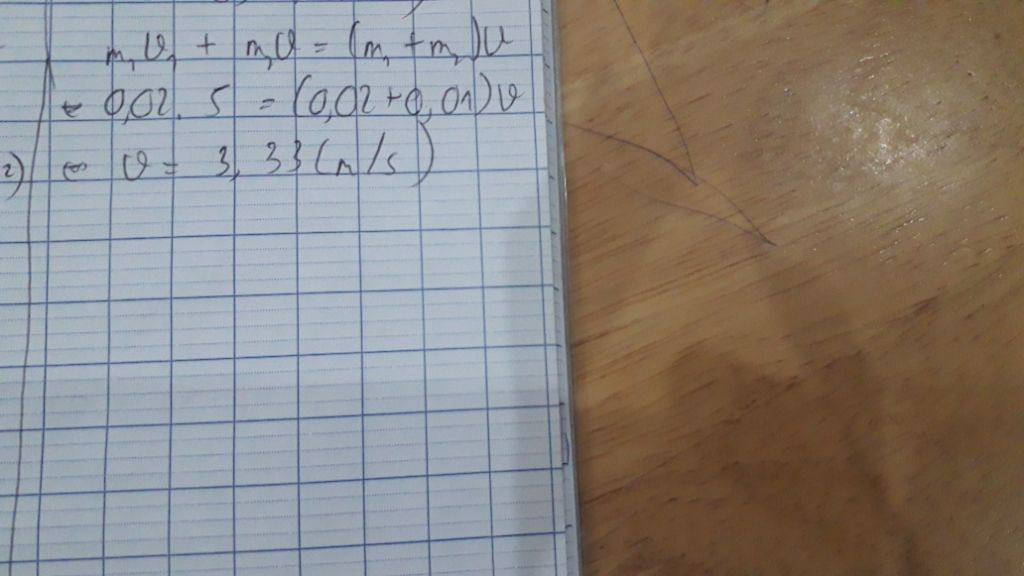 m₁v₁ + m₂v = (m₁ + m₂)v
⇔ 0,02. 5 = (0,02 + 0,01)v
2) ⇔ v = 3,33 (m/s)